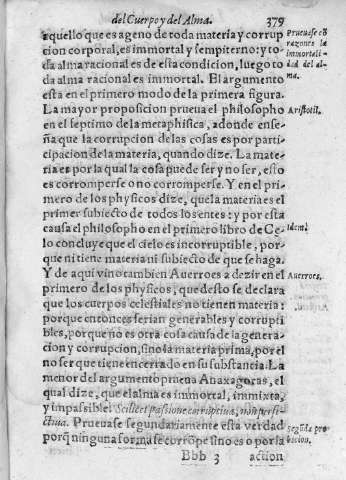 del Cuerpo y del Alma. 379
aquello que es ageno de toda materia y corrup
cion corporal, es immortal y sempiterno: y to-
da alma racional es de esta condicion, luego to
da alma racional es immortal. El argumento
esta en el primero modo de la primera figura.
La mayor proposicion prueua el philosopho
en el septimo de la metaphisica, adonde ense-
ña que la corrupcion de las cosas es por parti-
cipacion de la materia, quando dize. La mate-
ria es por la qual la cosa puede ser y no ser, esto
es corromperse o no corromperse. Y en el pri-
mero de los physicos dize, que la materia es el
primer subiecto de todos los entes: y por esta
causa el philosopho en el primero libro de Ce-
lo concluye que el cielo es incorruptible, por-
que ni tiene materia ni subiecto de que se haga.
Y de aqui vino tambien Auerroes a dezir en el
primero de los physicos, que desto se declara
que los cuerpos celestiales no tienen materia:
porque entonces serian generables y corrupti
bles, porque no es otra cosa causa de la genera-
cion y corrupcion, sino la materia prima, por el
no ser que tiene encerrado en su substancia. La
menor del argumento prueua Anaxagoras, el
qual dize, que el alma es immortal, immixta,
y impassible: Scilicet passione corruptiua, non perfe-
ctiua. Prueuase segundariamente esta verdad
porq̃ ninguna forma se corrõpe sino es o por la
Bbb 3 action
Prueuase cõ
razones la
immortali-
dad del al-
ma.
Aristotil.
Idem.
Auerroes.
segũda pro
bacion.